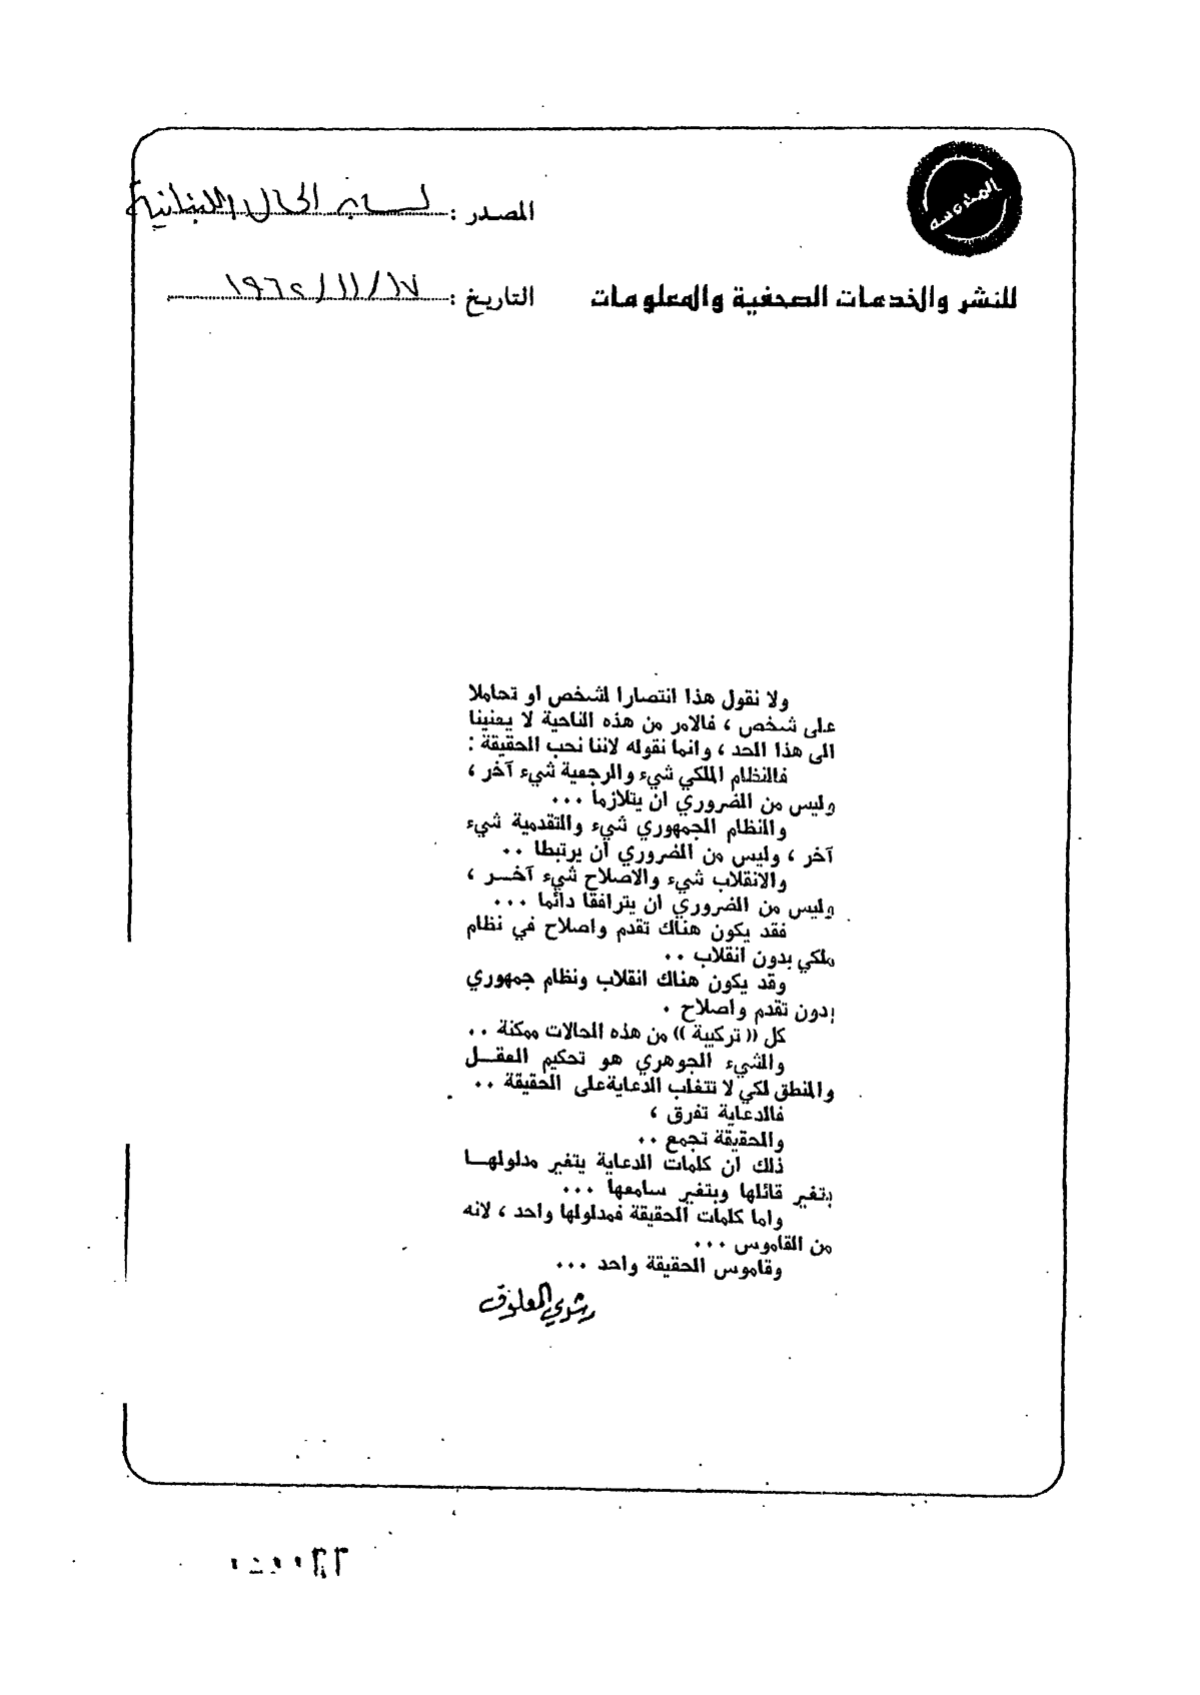 المصدر : لسان الحال اللبنانية
للنشر والخدمات الصحفية والمعلومات
التاريخ : ١٧/١١/١٩٦٢
ولا نقول هذا انتصارا لشخص او تحاملا
على شخص ، فالامر من هذه الناحية لا يعنينا
الى هذا الحد ، وانما نقوله لاننا نحب الحقيقة :
فالنظام الملكي شيء والرجعية شيء آخر ،
وليس من الضروري ان يتلازما ...
والنظام الجمهوري شيء والتقدمية شيء
آخر ، وليس من الضروري ان يرتبطا ..
والانقلاب شيء والاصلاح شيء آخـر ،
وليس من الضروري ان يترافقا دائما ...
فقد يكون هناك تقدم واصلاح في نظام
ملكي بدون انقلاب ..
وقد يكون هناك انقلاب ونظام جمهوري
بدون تقدم واصلاح .
كل (( تركيبة )) من هذه الحالات ممكنة ..
والشيء الجوهري هو تحكيم العقـل
والمنطق لكي لا تتغلب الدعاية على الحقيقة ..
فالدعاية تفرق ،
والحقيقة تجمع ..
ذلك ان كلمات الدعاية يتغير مدلولهـا
بتغير قائلها وبتغير سامعها ...
واما كلمات الحقيقة فمدلولها واحد ، لانه
من القاموس ...
وقاموس الحقيقة واحد ...
رشدي المعلوف